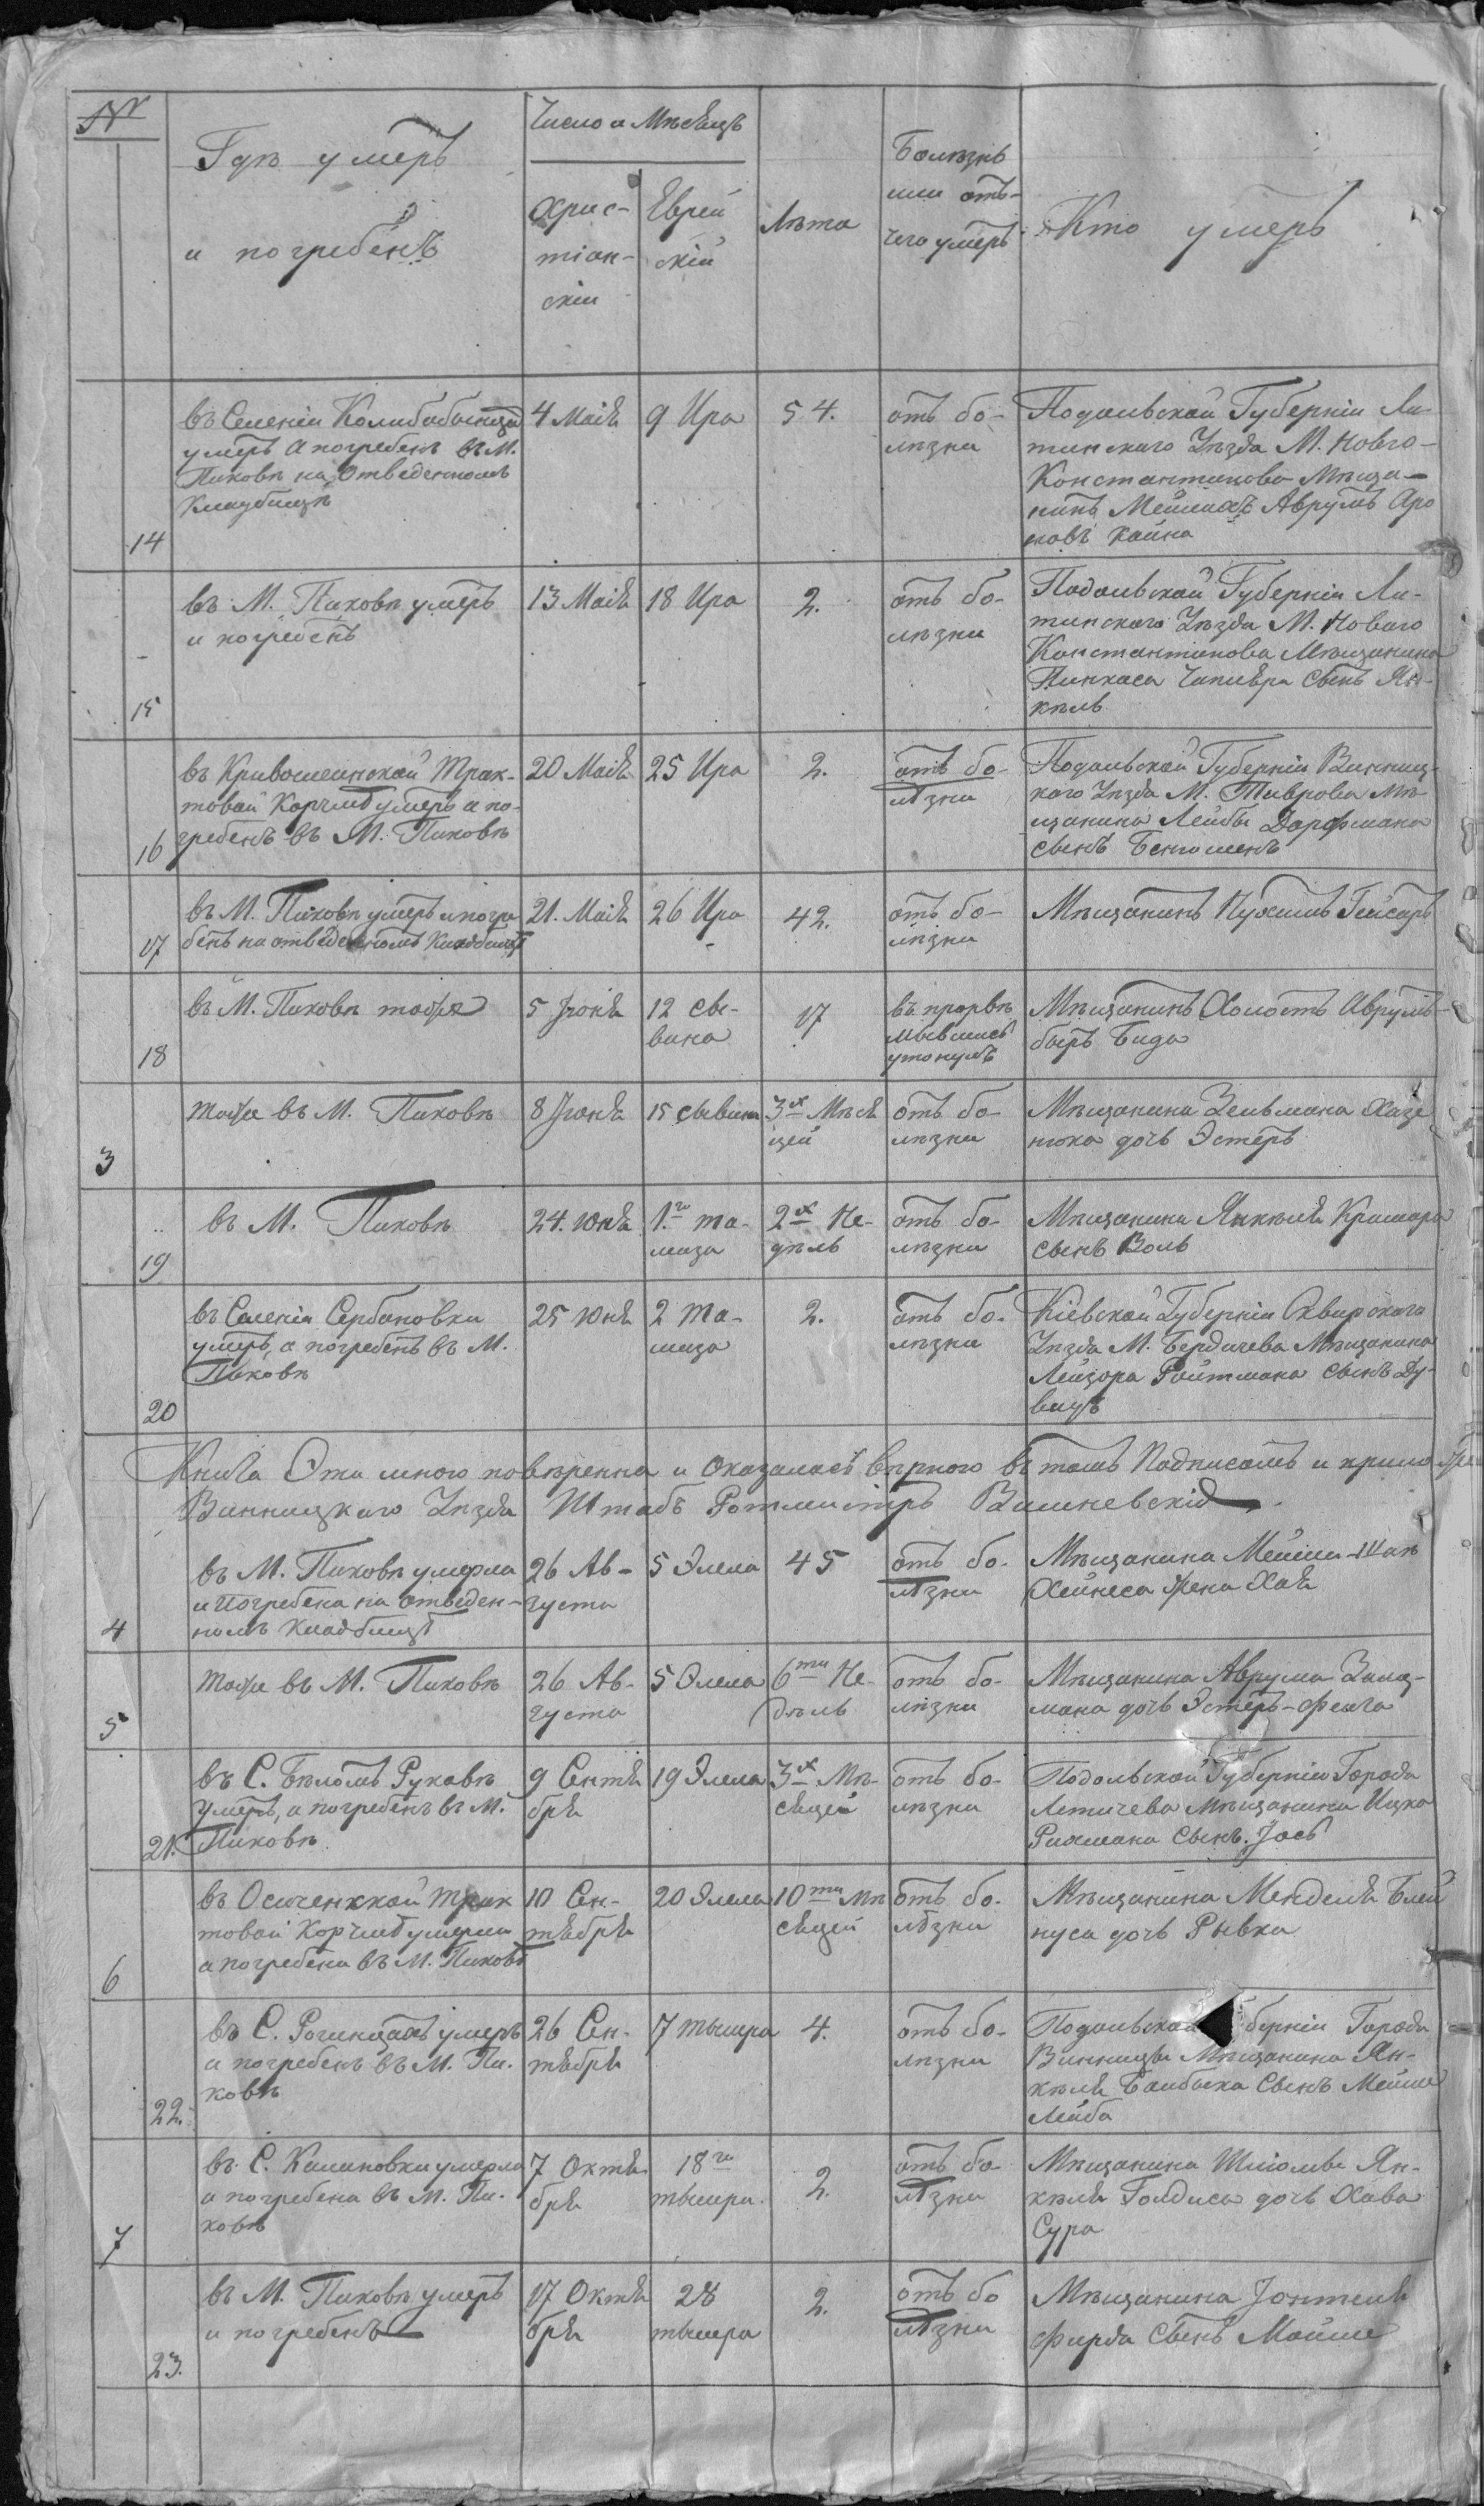 №
Гдѣ умеръ
и погребенъ
Число и Мѣсяцъ
Хрис-
тіан-
скій
Еврей
скій
Лѣта
Болѣзнь
или отъ
чего умеръ
Кто умеръ
14
въ Селеніи
умеръ а погребенъ въ М.
Пиковѣ на Отведенномъ
Кладбищѣ
4 Маія
9 Ира
54.
отъ бо-
лѣзни
Подольской Губерніи Ли-
тинского Уѣзда М. Новго-
Константинова Мѣща-
нинъ Аврумъ Аро
новъ
15
въ М. Пиковѣ умеръ
и погребенъ
13 Маія
18 Ира
2.
отъ бо-
лѣзни
Подольской Губерніи Ли-
тинского Уѣзда М. Новаго
Константинова Мѣщанина
Пинхаса сынъ Ян-
кель
16
въ Кривошеинской Трак-
товой Корчмѣ умеръ а по-
гребенъ въ М. Пиковѣ
20 Маія
25 Ира
2.
отъ бо-
лѣзни
Подольской Губерніи Винниц-
кого Уѣзда М. Тиврова Мѣ-
щанина Лейбы Дорфмана
сынъ
17
въ М. Пиковѣ умеръ и погре
бенъ на отведенномъ Кладбищѣ
21. Маія
26 Ира
42.
отъ бо-
лѣзни
Мѣщанинъ
18
въ М. Пиковѣ тоже
5 Іюня
12 Сы-
вана
17
въ прорвѣ
мывшись
утонулъ
Мѣщанинъ Холостъ Аврумъ-
беръ Бида
3
тоже въ М. Пиковѣ
8 Іюня
15 сывана
3х Мѣся
цей
отъ бо-
лѣзни
Мѣщанина Зельмана Хазе
нюка дочь Эстеръ
19
въ М. Пиковѣ
24. Юня
1.го та-
муза
2х Не-
дѣль
отъ бо-
лѣзни
Мѣщанина Янкеля Крамара
сынъ Воль
20
въ Селеніи Сербановки
умеръ, а погребенъ въ М.
Пиковѣ
25 Юня
2 Та-
муза
2.
отъ бо-
лѣзни
Кіевской Губерніи Сквирского
Уѣзда М. Бердичева Мѣщанина
Лейзора Ройтмана сынъ Ду-
видъ
Книга Эта мною повѣренна и Оказалась вѣрною въ томъ Подписомъ и
Винницкаго Уѣзда Штабъ Ротмистръ Вишневскій
4
въ М. Пиковѣ умерла
и Погребена на отведен-
номъ Кладбищѣ
26 Ав-
густа
5 Элела
45
отъ бо-
лѣзни
Мѣщанина
Хейнеса жена Хая
5
тоже въ М. Пиковѣ
26 Ав-
густа
5 Элела
6ти Не-
дѣль
отъ бо-
лѣзни
Мѣщанина Аврума Залц-
мана дочь Эстеръ-Фейга
21.
въ С. Бѣломъ Рукавѣ
Умеръ, а погребенъ въ М.
Пиковѣ
9 Сентя
бря
19 Элела
3х Мѣ-
сяцей
отъ бо-
лѣзни
Подольской Губерніи Города
Летичева Мѣщанина Ицка
Рихмана сынъ. Іось
6
въ трак
товой Корчмѣ умерла
а погребена въ М. Пиковѣ
10 Сен-
тября
20 Элела
10ти Мѣ
сяцей
отъ бо-
лѣзни
Мѣщанина Менделя Блей
нуса дочь Рывка
22.
въ С. Рогинцахъ умеръ
и погребенъ въ М. Пи-
ковѣ
26 Сен-
тября
7 тышра
4.
отъ бо-
лѣзни
Подольской берніи Города
Винницы Мѣщанина Ян-
келя сынъ Мошко
Лейба
7
въ С. Калиновки умерла
а погребена въ М. Пи-
ковѣ
7 Октя
бря
18го
тышра.
2.
отъ бо-
лѣзни
Мѣщанина Шліомы Ян-
келя Голдиса дочь Хава
Сура
23.
въ М. Пиковѣ умеръ
и погребенъ
17 Октя
бря
28
тышра
2.
отъ бо
лѣзни
Мѣщанина
Фирда сынъ Мойше